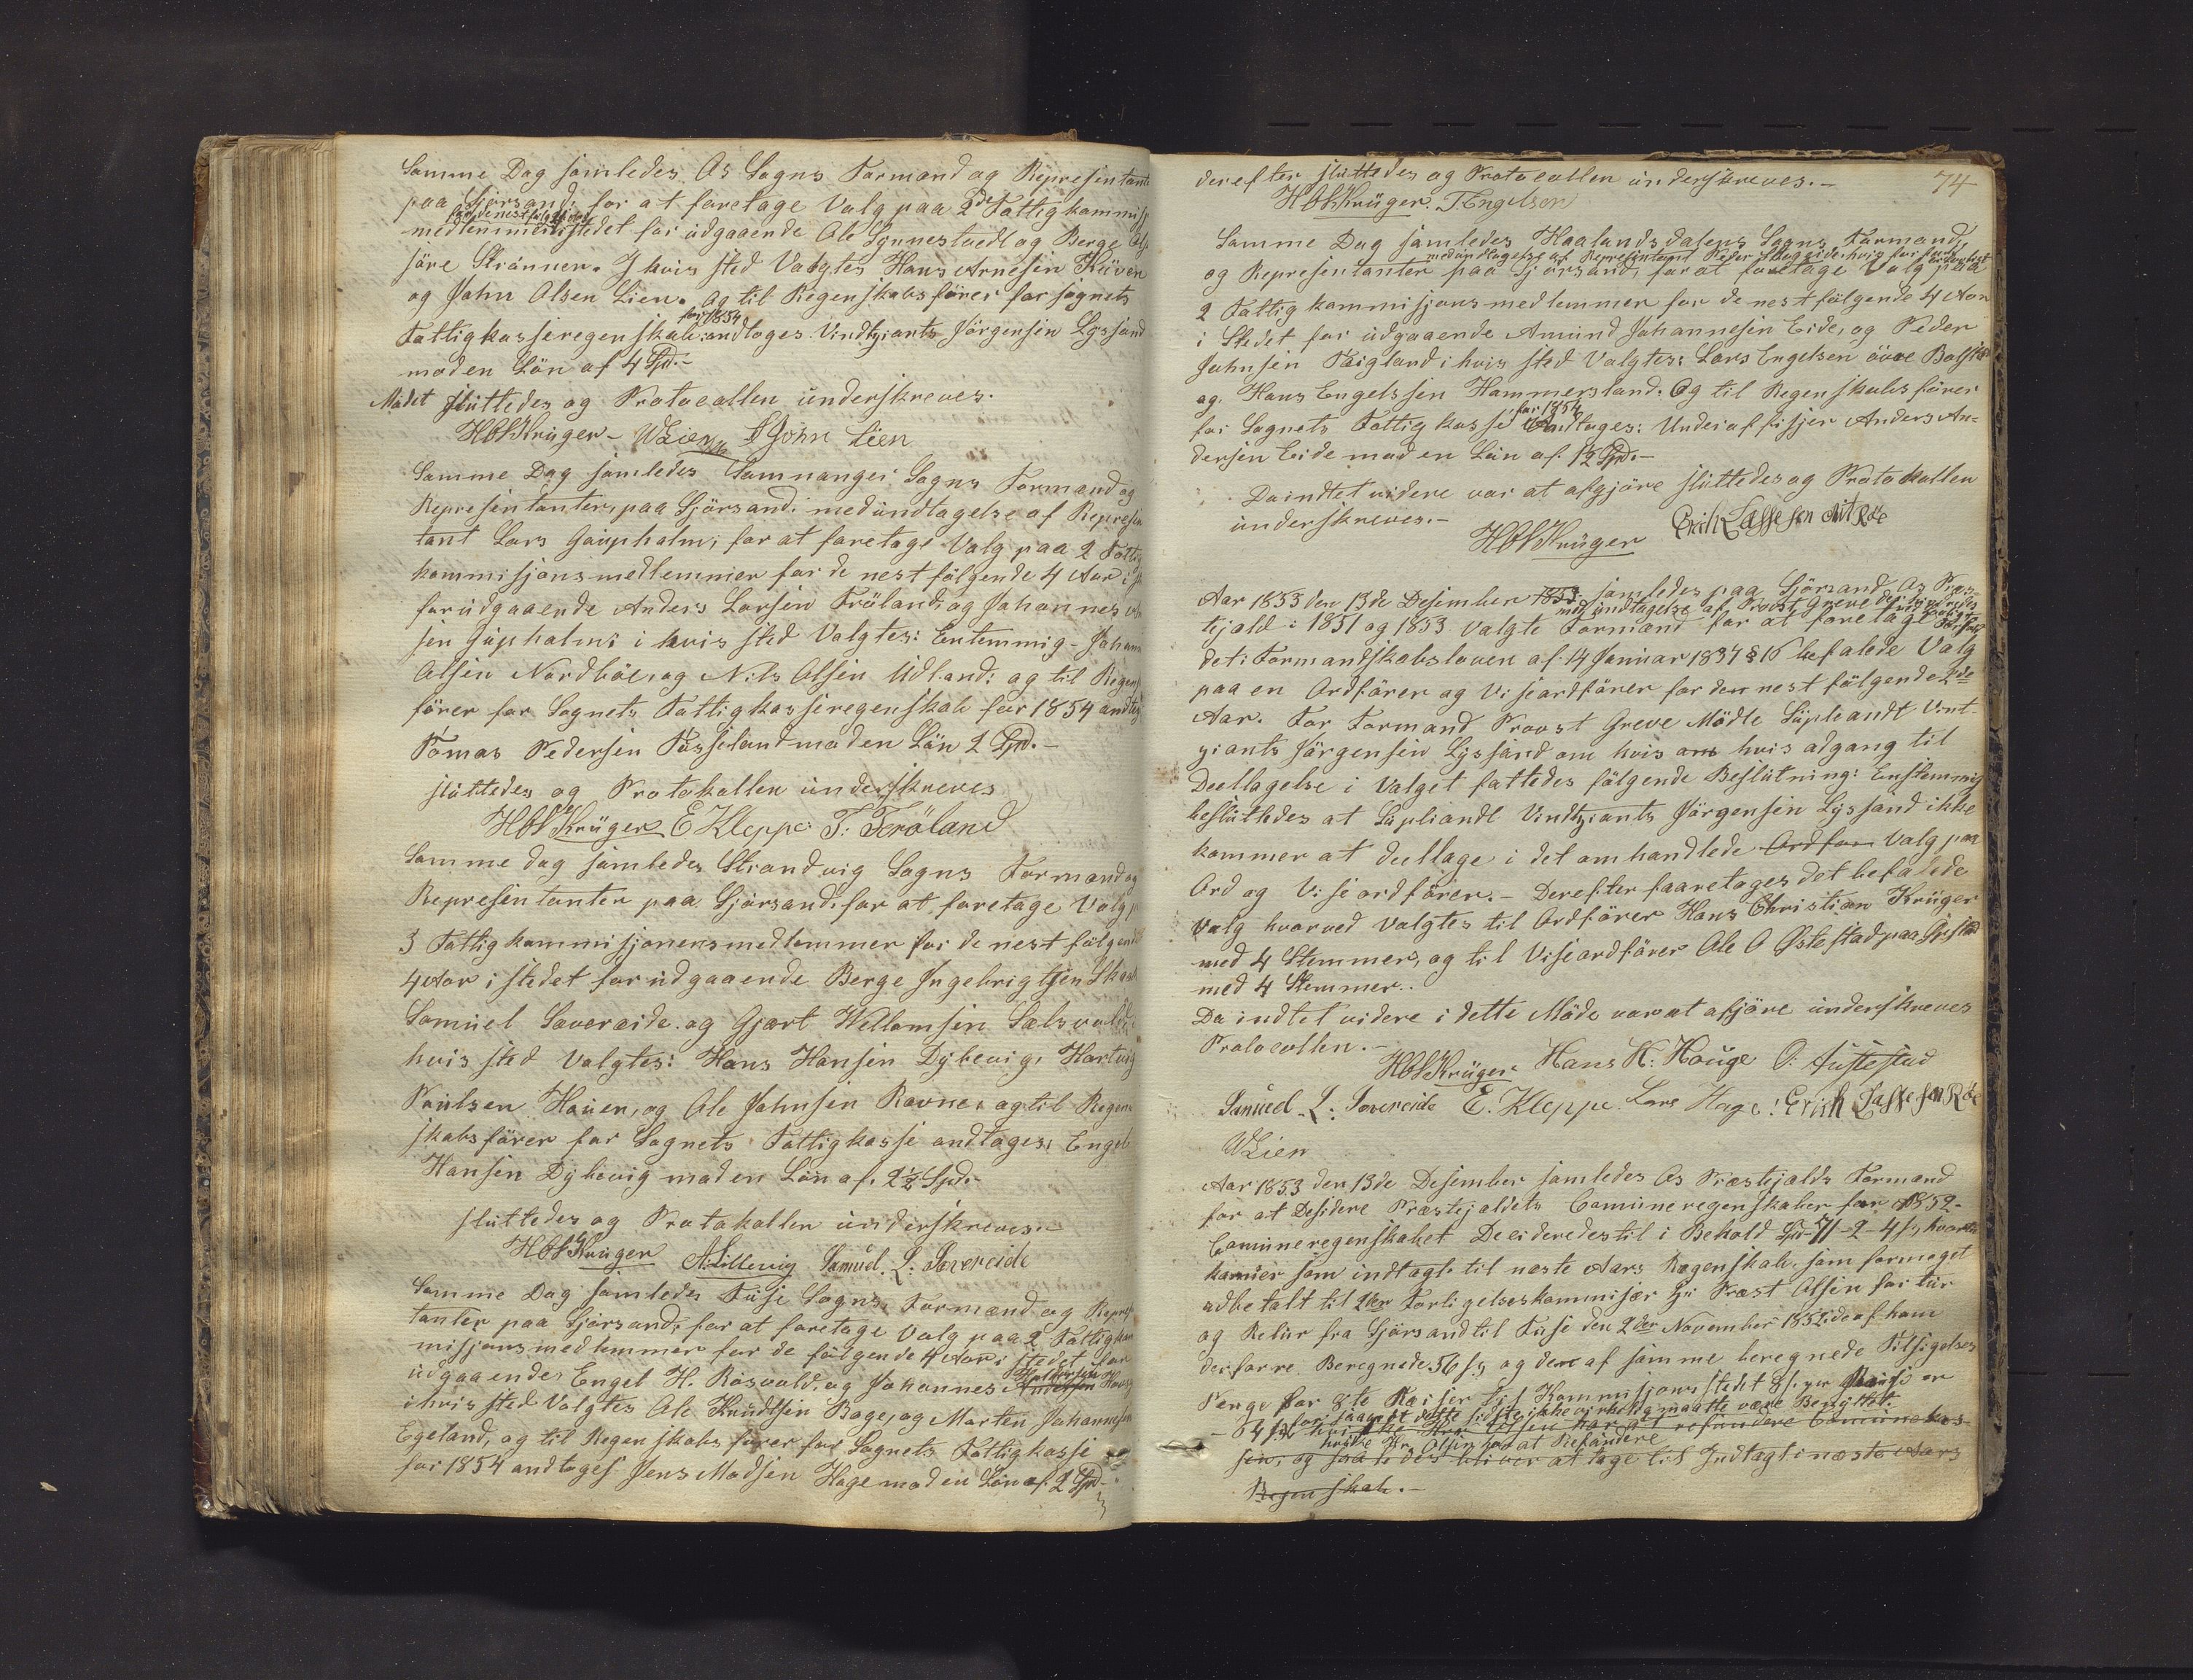 Samme Dag samledes Os Sogns Formænd og Representante
paa Gjørsand; for at foretage Valg paa 2de Fattigkommisj
for de nest følgende 4 Aar
medlemmer istedet for udgaaende Ole Synnestvedt og Berge Ols
søre Strønnen. I hvis sted Valgtes Hans Arnesen Kuven
og John Olsen Lien. Og til Regenskabsfører for sognets
for 1854
Fattigkasseregenskab: andtoges Vindtziants Jørgensen Lyssand
mod en Løn af 4 Spd.-
Mødet sluttedes og Protocollen underskreves.
HCKrüger - WLien John Lien
Samme Dag samledes Samnanger Sogns Formænd og
Representanter, paa Gjørsand: med undtagelse af Represen
tant Lars Gaupholm, for at foretage Valg paa 2 Fattig
kommisjonsmedlemmer for de nest følgende 4 Aar i
for udgaaende Anders Larsen Frøland og Johannes
sen Gupholm: i hvis sted Valgtes: Entemmig - Johann
Olsen Nordbøe, og Nils Olsen Udland: og til Regens
fører for Sognets Fattigkasseregenskab for 1854 andtog
Tomas Pedersen Tøsseland mod en Løn 2 Spd.-
sluttedes og Protokollen underskreves
HCKrüger E Kleppe T: Frøland
Samme dag samledes Strandvig Sogns Formænd og
Representanter paa Gjørsand, for at foretage Valg p
3 Fattigkommisjonensmedlemmer for de nest følgende
4 Aar istedet for udgaaende Berge Ingebrigtsen Ska
Samuel Sævereide og Gjært Wellomsen Sælsvold i
hvis sted Valgtes: Hans Hansen Dybevig, Hartvig
Poulsen Hauen, og Ole Johnsen Ravne, og til Regen
skabsfører for Sognets Fattigkasse andtages, Engel
Hansen Dybevig mod en Løn af 2½ Spd.-
sluttedes og Protokollen underskreves.-
HCKrüger A. Lillevig Samuel. L. Sævereide
Samme Dag samledes Fuse Sogns, Formænd og Repres
tanter paa Gjørsand, for at foretage Valg paa 2 Fattigkom
misjonsmedlemmer for de følgende 4 Aar istedet for
Haldorsen
udgaaende, Engel H. Røsvold, og Johannes Andersen
i hvis sted Valgtes Ole Knudtsen Bøge, og Morten Johannesen
Egeland, og til Regenskabsfører for Sognets Fattigkasse
for 1854 andtoges Jens Madsen Hage mod en Løn af 2 Spd-
74
derefter sluttedes og Protocollen underskreves.-
HCKrüger. T. Engelsen
Samme Dag samledes Haalandsdalens Sogns Formænd,
med undtagelse af Representant Peder Skogseide, hvis forfald
og Representanter paa Gjørsand, for at foretage Valg paa
2 Fattigkommisjonsmedlemmer for de nest følgende 4 Aar
i Stedet for udgaaende Amund Johannesen Eide, og Peder
Johnsen Teigland i hvis sted Valgtes: Lars Engelsen øvre
og Hans Engelssen Hammersland. Og til Regenskabsfører
for 1854
for Sognets Fattigkasse andtages: Underoffisjer Anders An-
dersen Eide mod en Løn af 1½ Spd.-
Da indtet videre var at afgjøre sluttedes og Protokollen
underskreves.-
HCKrüger Erich Lassesen Røe
Aar 1853 den 13de Desember 1853 samledes paa Gjørsand Os Præs-
med undtagelse af Provst Greve
tejeld i 1851 og 1853 Valgte Formænd for at foretage
det i Formandskabsloven af 14 Januar 1837 § 16 befalede Valg
paa en Ordfører og Viseordfører for den nest følgende 2de
Aar. For Formand Provst Greve Mødte Supleandt Vint-
ziants Jørgensen Lyssand om hvis om hvis adgang til
Deeltagelse i Valget fattedes følgende Beslutning: Enstemmig
besluttedes at Supliandt Vindtziants Jørgensen Lyssand ikke
kommer at deeltage i det omhandlede Ordfør Valg paa
Ord og Viseordfører.- Derefter faaretoges det befalede
Valg hvorved Valgtes til Ordfører Hans Christian Krüger
med 4 Stemmer, og til Viseordfører Ole O Østestad paa
med 4 Stemmer.
Da indtet videre i dette Møde var at afjøre underskreves
Protocollen.-
HCKrüger Hans H. Hauge O: Austestad
Samuel. L. Sævereide E. Kleppe. Lars Hage. Erich Lassesen Røe
WLien
Aar 1853 den 13de Desember samledes Os Præstejelds Formænd
for at Desidere Præstejeldets Comuneregenskaber for 1852-
Comuneregenskabet Decideredes til i Behold Spd 71-2-4 s, hvortil
kommer som indtægt til næste Aars Regenskab, som formeget
udbetalt til 2den Forligelseskommisær Hr Præst Olsen for tur
og Retur fra Gjørsand til Fuse den 2den November 1852 de af ham
derforre Beregnede 56 s, og dem af samme beregnede Tilsigelses
Penge for 8te Reiser til Kommisjonsstedet 8 s. pr Reise er
for saavidt dette sidste ikke virkelig maatte være Benyttet.
- 64 s hvilke Hr. Olsen har at refundere Comunekas-
hvilke Hr Olsen har at Refundere
sen, og saaledes bliver at tage til Indtægt i næste Aars
Regenskab.-